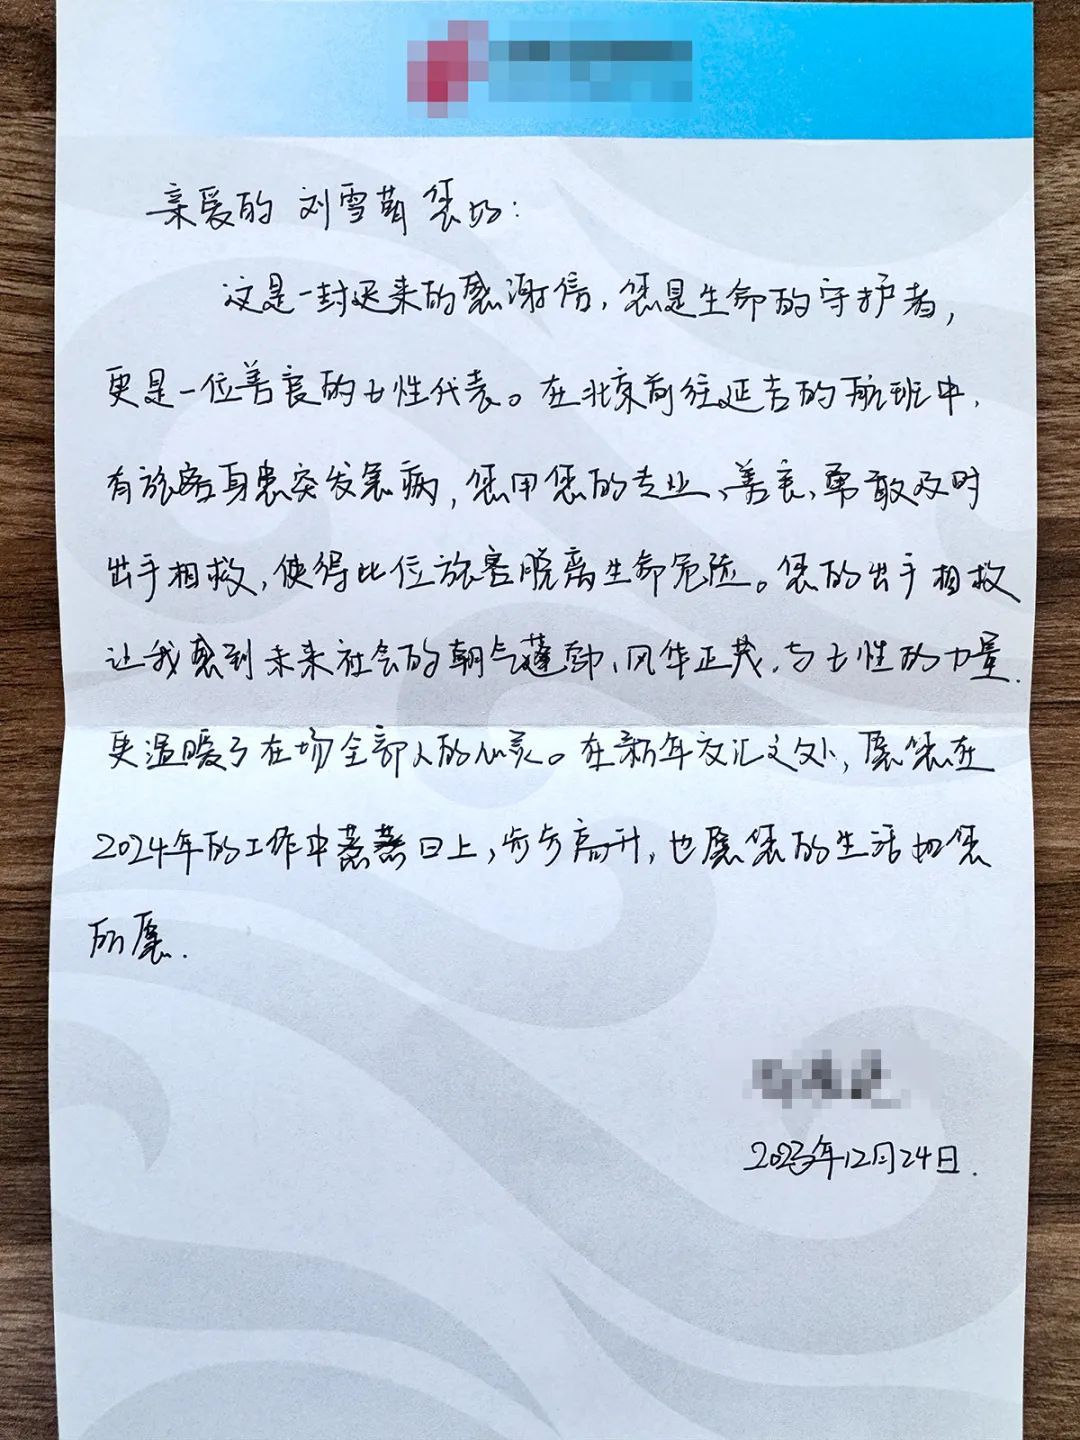 亲爱的 刘雪萌 您好:
这是一封迟来的感谢信,您是生命的守护者,
更是一位善良的女性代表。在北京前往延吉的航班中,
有旅客身患突发急病,您用您的专业、善良、勇敢及时
出手相救,使得此位旅客脱离生命危险。您的出手相救
让我感到未来社会的朝气蓬勃、风华正茂,与女性的力量.
更温暖了在场全部人的心灵。在新年交汇之处,愿您在
2024年的工作中蒸蒸日上,步步高升,也愿您的生活如您
所愿.
2023年12月24日.